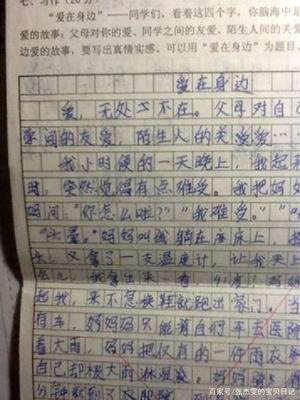 七、习作(20分)
“爱在身边”——同学们,看着这四个字,你脑海中是
爱的故事:父母对你的爱、同学之间的友爱、陌生人间的关
边爱的故事,要写出真情实感,可以用“爱在身边”为题目
爱在身边
爱,无处不在。父母对自
学间的友爱,陌生人的关爱…
我小时侯的一天晚上,我起来
突然觉得有点难受。我把妈
妈问:“你怎么啦?”“我难受。”
“头晕。”妈妈叫我躺在床上,
头,又拿了一支温度计,让我夹
我拿出来一看 41度,妈妈
起我,来不急换鞋就跑出家门。当
有车,妈妈只能着自行车去医院
着大雨,妈妈把仅有的一件雨衣
自己却被大雨淋湿
分钟就到了
百家号/张杰雯的宝贝日记